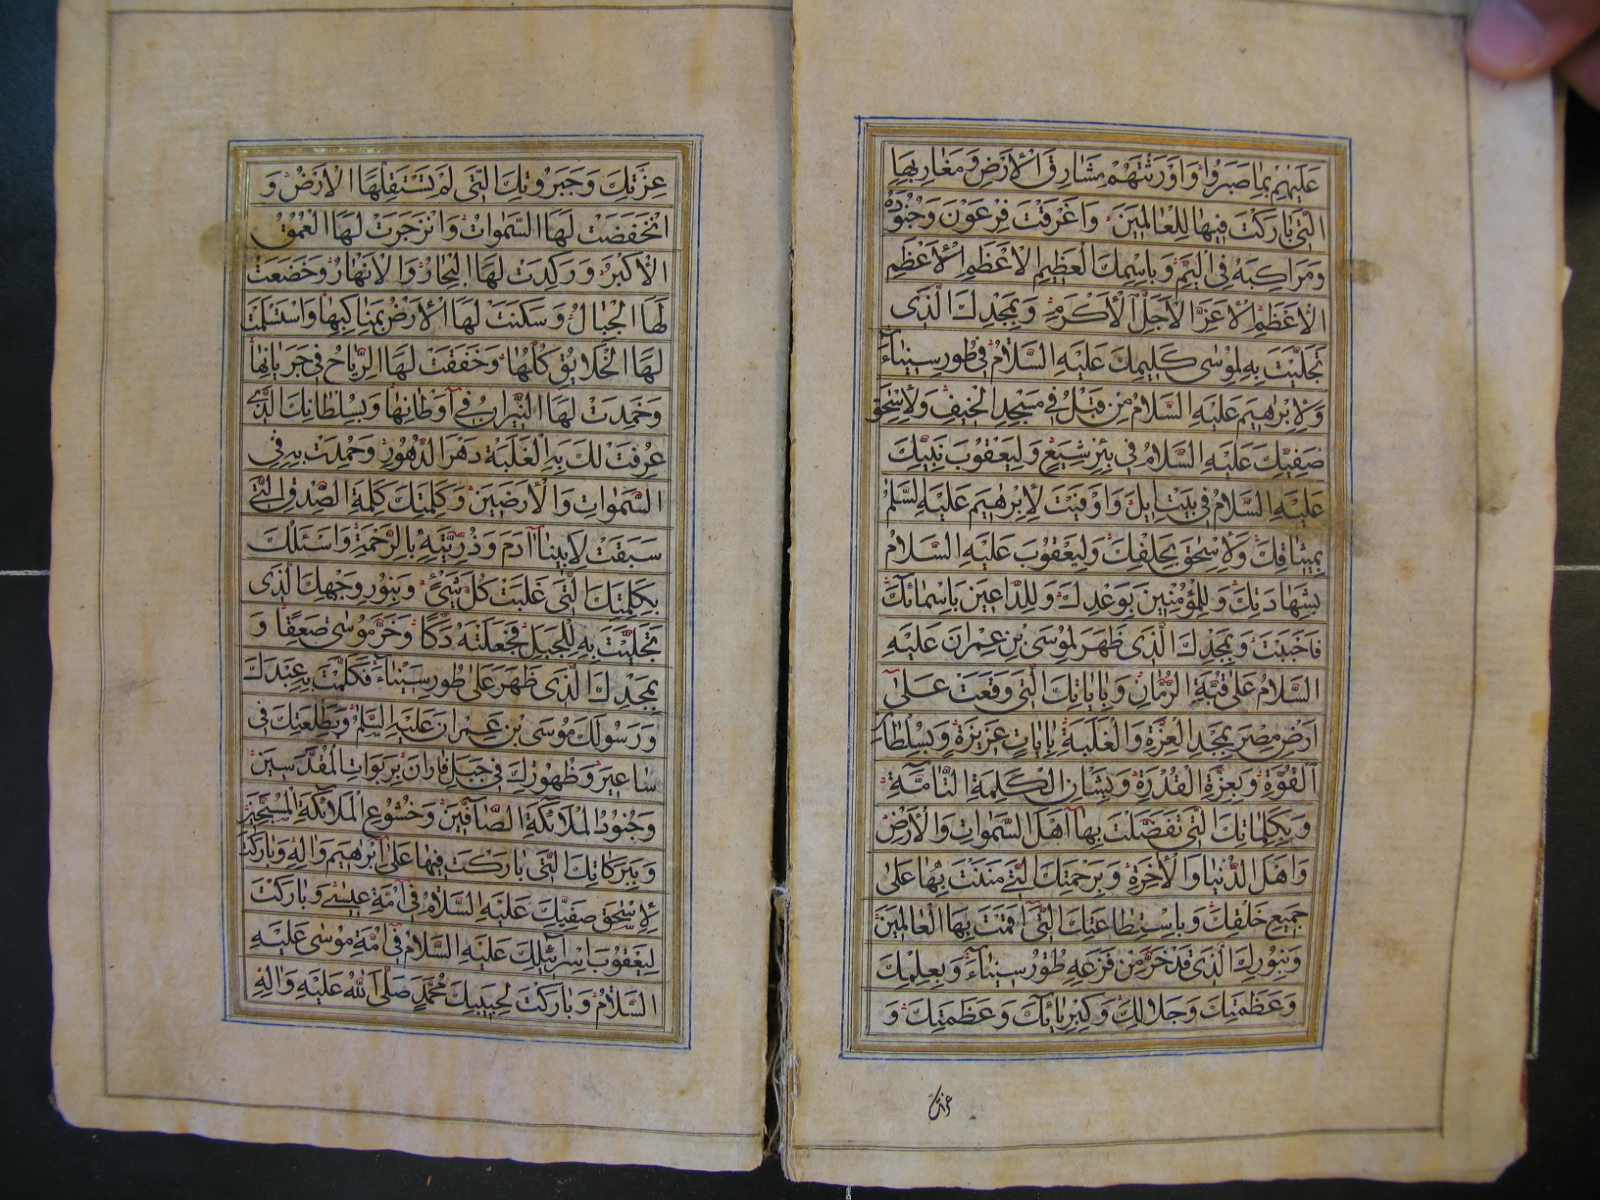 عَلَيْهِمْ بِمَا صَبَرُوا وَاَوْرَثْتَهُمْ مَشَارِقَ الْاَرْضِ وَمَغَارِبَهَا
الَّتِي بَارَكْتَ فِيهَا لِلْعَالَمِينَ وَاَغْرَقْتَ فِرْعَوْنَ وَجُنُودَهُ
وَمَرَاكِبَهُ فِي الْيَمِّ وَبِاسْمِكَ الْعَظِيمِ الْاَعْظَمِ الْاَعْظَمِ
الْاَعْظَمِ الْاَعَزِّ الْاَجَلِّ الْاَكْرَمِ وَبِمَجْدِكَ الَّذِي
تَجَلَّيْتَ بِهِ لِمُوسٰى كَلِيمِكَ عَلَيْهِ السَّلَامُ فِي طُورِ سَيْنَاءَ
وَلِاِبْرٰهِيمَ عَلَيْهِ السَّلَامُ مِنْ قَبْلُ فِي مَسْجِدِ الْخَيْفِ وَلِاِسْحٰقَ
صَفِيِّكَ عَلَيْهِ السَّلَامُ فِي بِئْرِ شِيَعٍ وَلِيَعْقُوبَ نَبِيِّكَ
عَلَيْهِ السَّلَامُ فِي بَيْتِ اِيلَ وَاَوْفَيْتَ لِاِبْرٰهِيمَ عَلَيْهِ السَّلٰمُ
بِمِيثَاقِكَ وَلِاِسْحٰقَ بِحَلْفِكَ وَلِيَعْقُوبَ عَلَيْهِ السَّلَامُ
بِشَهَادَتِكَ وَلِلْمُؤْمِنِينَ بِوَعْدِكَ وَلِلدَّاعِينَ بِاَسْمَائِكَ
فَاَجَبْتَ وَبِمَجْدِكَ الَّذِي ظَهَرَ لِمُوسَى بْنِ عِمْرَانَ عَلَيْهِ
السَّلَامُ عَلٰى قُبَّةِ الرُّمَّانِ وَبِاٰيَاتِكَ الَّتِي وَقَعَتْ عَلٰى
اَرْضِ مِصْرَ بِمَجْدِ الْعِزَّةِ وَالْغَلَبَةِ بِاٰيَاتٍ عَزِيزَةٍ وَبِسُلْطَانِ
الْقُوَّةِ وَبِعِزَّةِ الْقُدْرَةِ وَبِشَاْنِ الْكَلِمَةِ التَّامَّةِ
وَبِكَلِمَاتِكَ الَّتِي تَفَضَّلْتَ بِهَا اَهْلَ السَّمٰوَاتِ وَالْاَرْضِ
وَاَهْلَ الدُّنْيَا وَالْاٰخِرَةِ وَبِرَحْمَتِكَ الَّتِي مَنَنْتَ بِهَا عَلٰى
جَمِيعِ خَلْقِكَ وَبِاسْتِطَاعَتِكَ الَّتِي اَقَمْتَ بِهَا الْعَالَمِينَ
وَبِنُورِكَ الَّذِي قَدْ خَرَّ مِنْ فَزَعِهِ طُورُ سَيْنَاءَ وَبِعِلْمِكَ
وَعَظَمَتِكَ وَجَلَالِكَ وَكِبْرِيَائِكَ وَعَظَمَتِكَ وَ
عزتك
عِزَّتِكَ وَجَبَرُوتِكَ الَّتِي لَمْ تَسْتَقِلَّهَا الْاَرْضُ وَ
انْخَفَضَتْ لَهَا السَّمٰوَاتُ وَانْزَجَرَتْ لَهَا الْعُمْقُ
الْاَكْبَرُ وَرَكَدَتْ لَهَا الْبِحَارُ وَالْاَنْهَارُ وَخَضَعَتْ
لَهَا الْجِبَالُ وَسَكَنَتْ لَهَا الْاَرْضُ بِمَنَاكِبِهَا وَاسْتَسْلَمَتْ
لَهَا الْخَلَائِقُ كُلُّهَا وَخَفَقَتْ لَهَا الرِّيَاحُ فِي جَرَيَانِهَا
وَخَمَدَتْ لَهَا النِّيرَانُ فِي اَوْطَانِهَا وَبِسُلْطَانِكَ الَّذِي
عُرِفَتْ لَكَ بِهِ الْغَلَبَةُ دَهْرَ الدُّهُورِ وَحُمِدْتَ بِهِ فِي
السَّمٰوَاتِ وَالْاَرَضِينَ وَكَلِمَتِكَ كَلِمَةِ الصِّدْقِ الَّتِي
سَبَقَتْ لِاَبِينَا اٰدَمَ وَذُرِّيَّتِهِ بِالرَّحْمَةِ وَاَسْئَلُكَ
بِكَلِمَتِكَ الَّتِي غَلَبَتْ كُلَّ شَيْءٍ وَبِنُورِ وَجْهِكَ الَّذِي
تَجَلَّيْتَ بِهِ لِلْجَبَلِ فَجَعَلْتَهُ دَكًّا وَخَرَّ مُوسٰى صَعِقًا وَ
بِمَجْدِكَ الَّذِي ظَهَرَ عَلٰى طُورِ سَيْنَاءَ فَكَلَّمْتَ بِهِ عَبْدَكَ
وَرَسُولَكَ مُوسَى بْنَ عِمْرَانَ عَلَيْهِ السَّلٰمُ وَبِطَلْعَتِكَ فِي
سَاعِيرَ وَظُهُورِكَ فِي جَبَلِ فَارَانَ بِرَبَوَاتِ الْمُقَدَّسِينَ
وَجُنُودِ الْمَلَائِكَةِ الصَّافِّينَ وَخُشُوعِ الْمَلَائِكَةِ الْمُسَبِّحِينَ
وَبِبَرَكَاتِكَ الَّتِي بَارَكْتَ فِيهَا عَلٰى اِبْرٰهِيمَ وَاٰلِهِ وَبَارَكْتَ
لِاِسْحٰقَ صَفِيِّكَ عَلَيْهِ السَّلَامُ فِي اُمَّةِ عِيسٰى وَبَارَكْتَ
لِيَعْقُوبَ اِسْرَائِيلِكَ عَلَيْهِ السَّلَامُ فِي اُمَّةِ مُوسٰى عَلَيْهِ
السَّلَامُ وَبَارَكْتَ لِحَبِيبِكَ مُحَمَّدٍ صَلَّى اللّٰهُ عَلَيْهِ وَاٰلِهِ